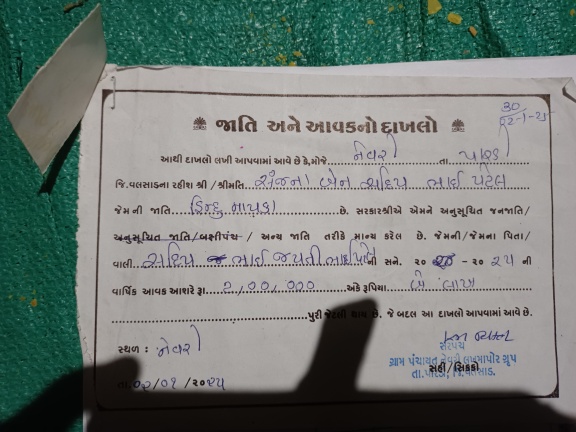 30
02-1-25
જાતિ અને આવકનો દાખલો
આથી દાખલો લખી આપવામાં આવે છે કે,મોજે. નેવરી તા. પારડી
જિ.વલસાડના રહીશ શ્રી / શ્રીમતિ. સંજના બેન સંદિપ ભાઈ પટેલ
જેમની જાતિ હિન્દુ નાયકા છે. સરકારશ્રીએ એમને અનુસૂચિત જનજાતિ/
અનુસૂચિત જાતિ/બક્ષીપંચ / અન્ય જાતિ તરીકે માન્ય કરેલ છે. જેમની/જેમના પિતા/
વાલી સંદિપ ભાઈ જયંતી ભાઈ ની સને. ૨૦ - ૨૦ ૨૫ ની
વાર્ષિક આવક આશરે રૂા 2,00,000 અંકે રૂપિયા બે લાખ
પુરી જેટલી થાય છે. જે બદલ આ દાખલો આપવામાં આવે છે.
સ્થળ : નેવરી
સરપંચ
ગ્રામ પંચાયત નેવરી લખમાપોર ગ્રુપ
સહી/સિક્કો
તા.પારડી, જિ.વલસાડ.
તા.૦૨/૦૧ /૨૦૨૫